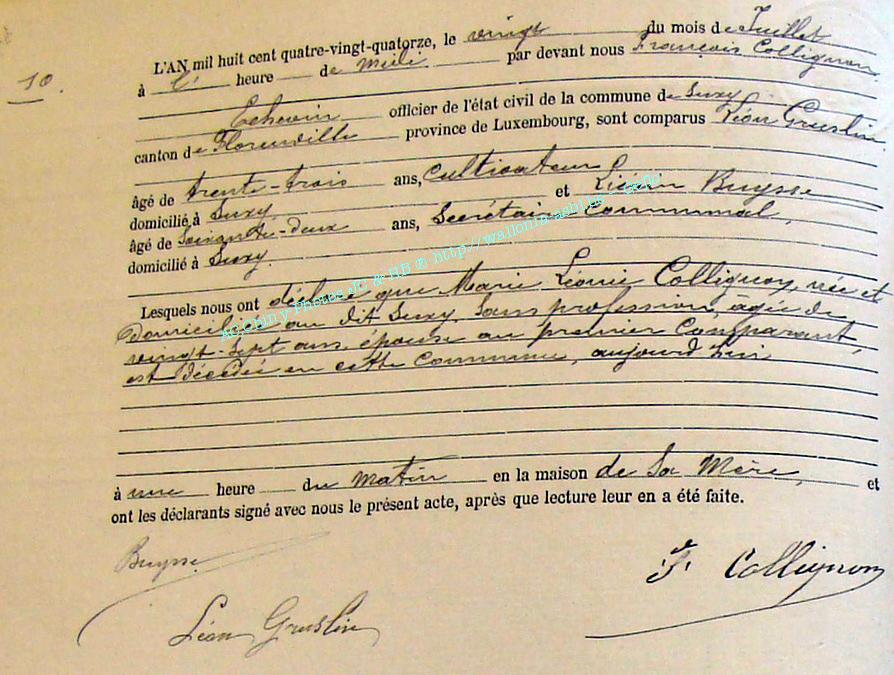 10.
L'AN mil huit cent quatre-vingt-quatorze, le vingt du mois de Juillet
à l' heure de midi par devant nous François Collignon
Echevin officier de l'état civil de la commune de Suxy
canton de Florenville province de Luxembourg, sont comparus Léon Gruslin
âgé de trente-trois ans, Cultivateur
domicilié à Suxy. et Buysse
âgé de Soixante-deux ans, Secrétaire Communal,
domicilié à Suxy.
Lesquels nous ont déclaré que Marie Léonie Collignon, née et
domiciliée au dit Suxy, Sans profession, âgée de
vingt-sept ans, épouse au premier Comparant,
est décédée en cette Commune, aujourd'hui
à une heure du matin en la maison de Sa Mère, et
ont les déclarants signé avec nous le présent acte, après que lecture leur en a été faite.
Buysse
F. Collignon
Léon Gruslin